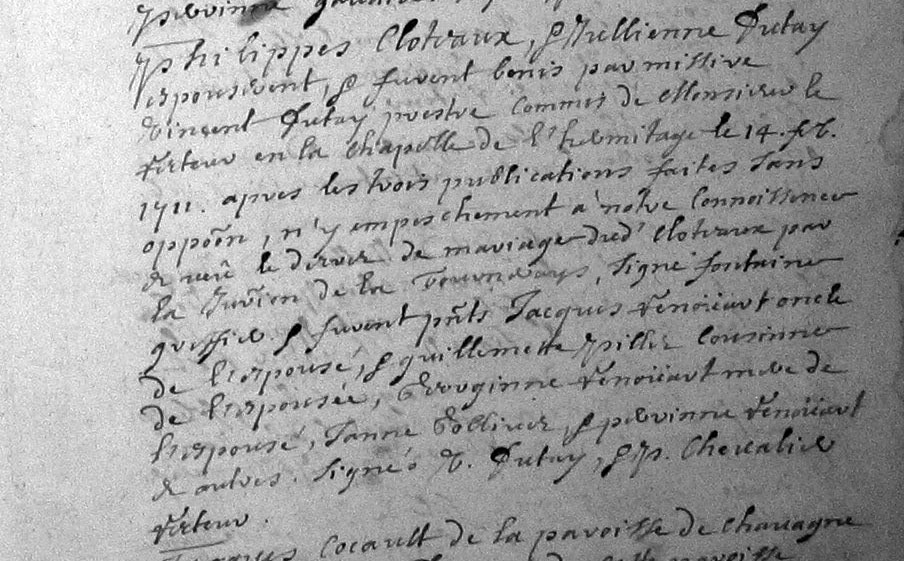 perrinne
Philippes Cloteaux, & Jullienne Dutay
espouserent, & furent benis par missire
Vincent Dutay prestre commis de Monsieur le
Recteur en la chapelle de l'hermitage le 14. feb.
1711. apres les trois publications faites sans
oppoõn, n'y empeschement a notre connoissence
& veü le decret de mariage dud' Cloteaux par
la Juri͠on de la signé fontaine
greffier. & furent pñts Jacques Renoüart oncle
de l'espousé, & guillemette Pillet cousinne
de l'espousée, Renoüart mere de
l'espousé, Janne Collinet, & perrinne Renoüart
& autres. signés V. Dutay, & P. Chevalier
Recteur.
Cocault de la paroisse de Chavagne
paroisse